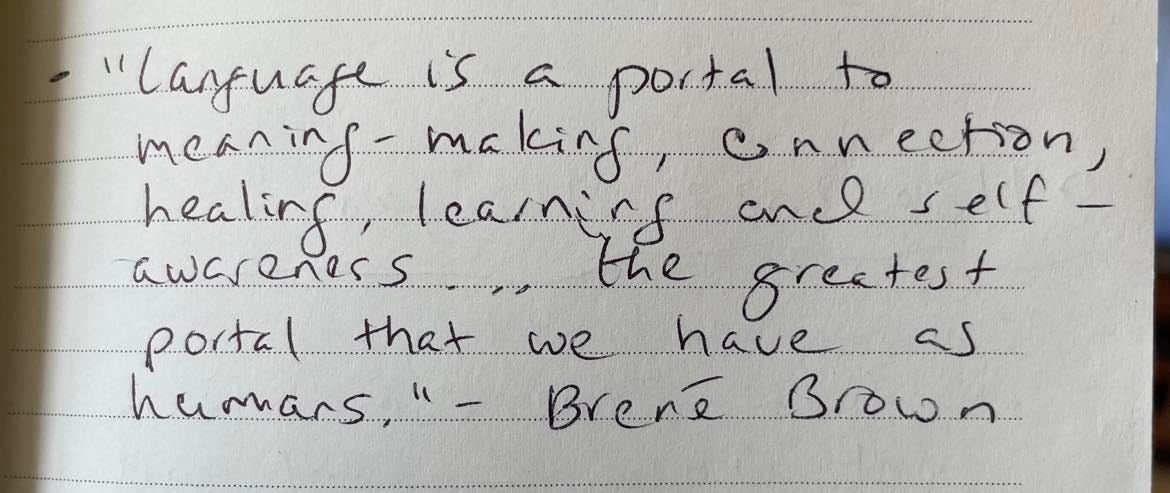 - "Language is a portal to
meaning-making, connection,
healing, learning and self-
awareness... the greatest
portal that we have as
humans," - Brené Brown